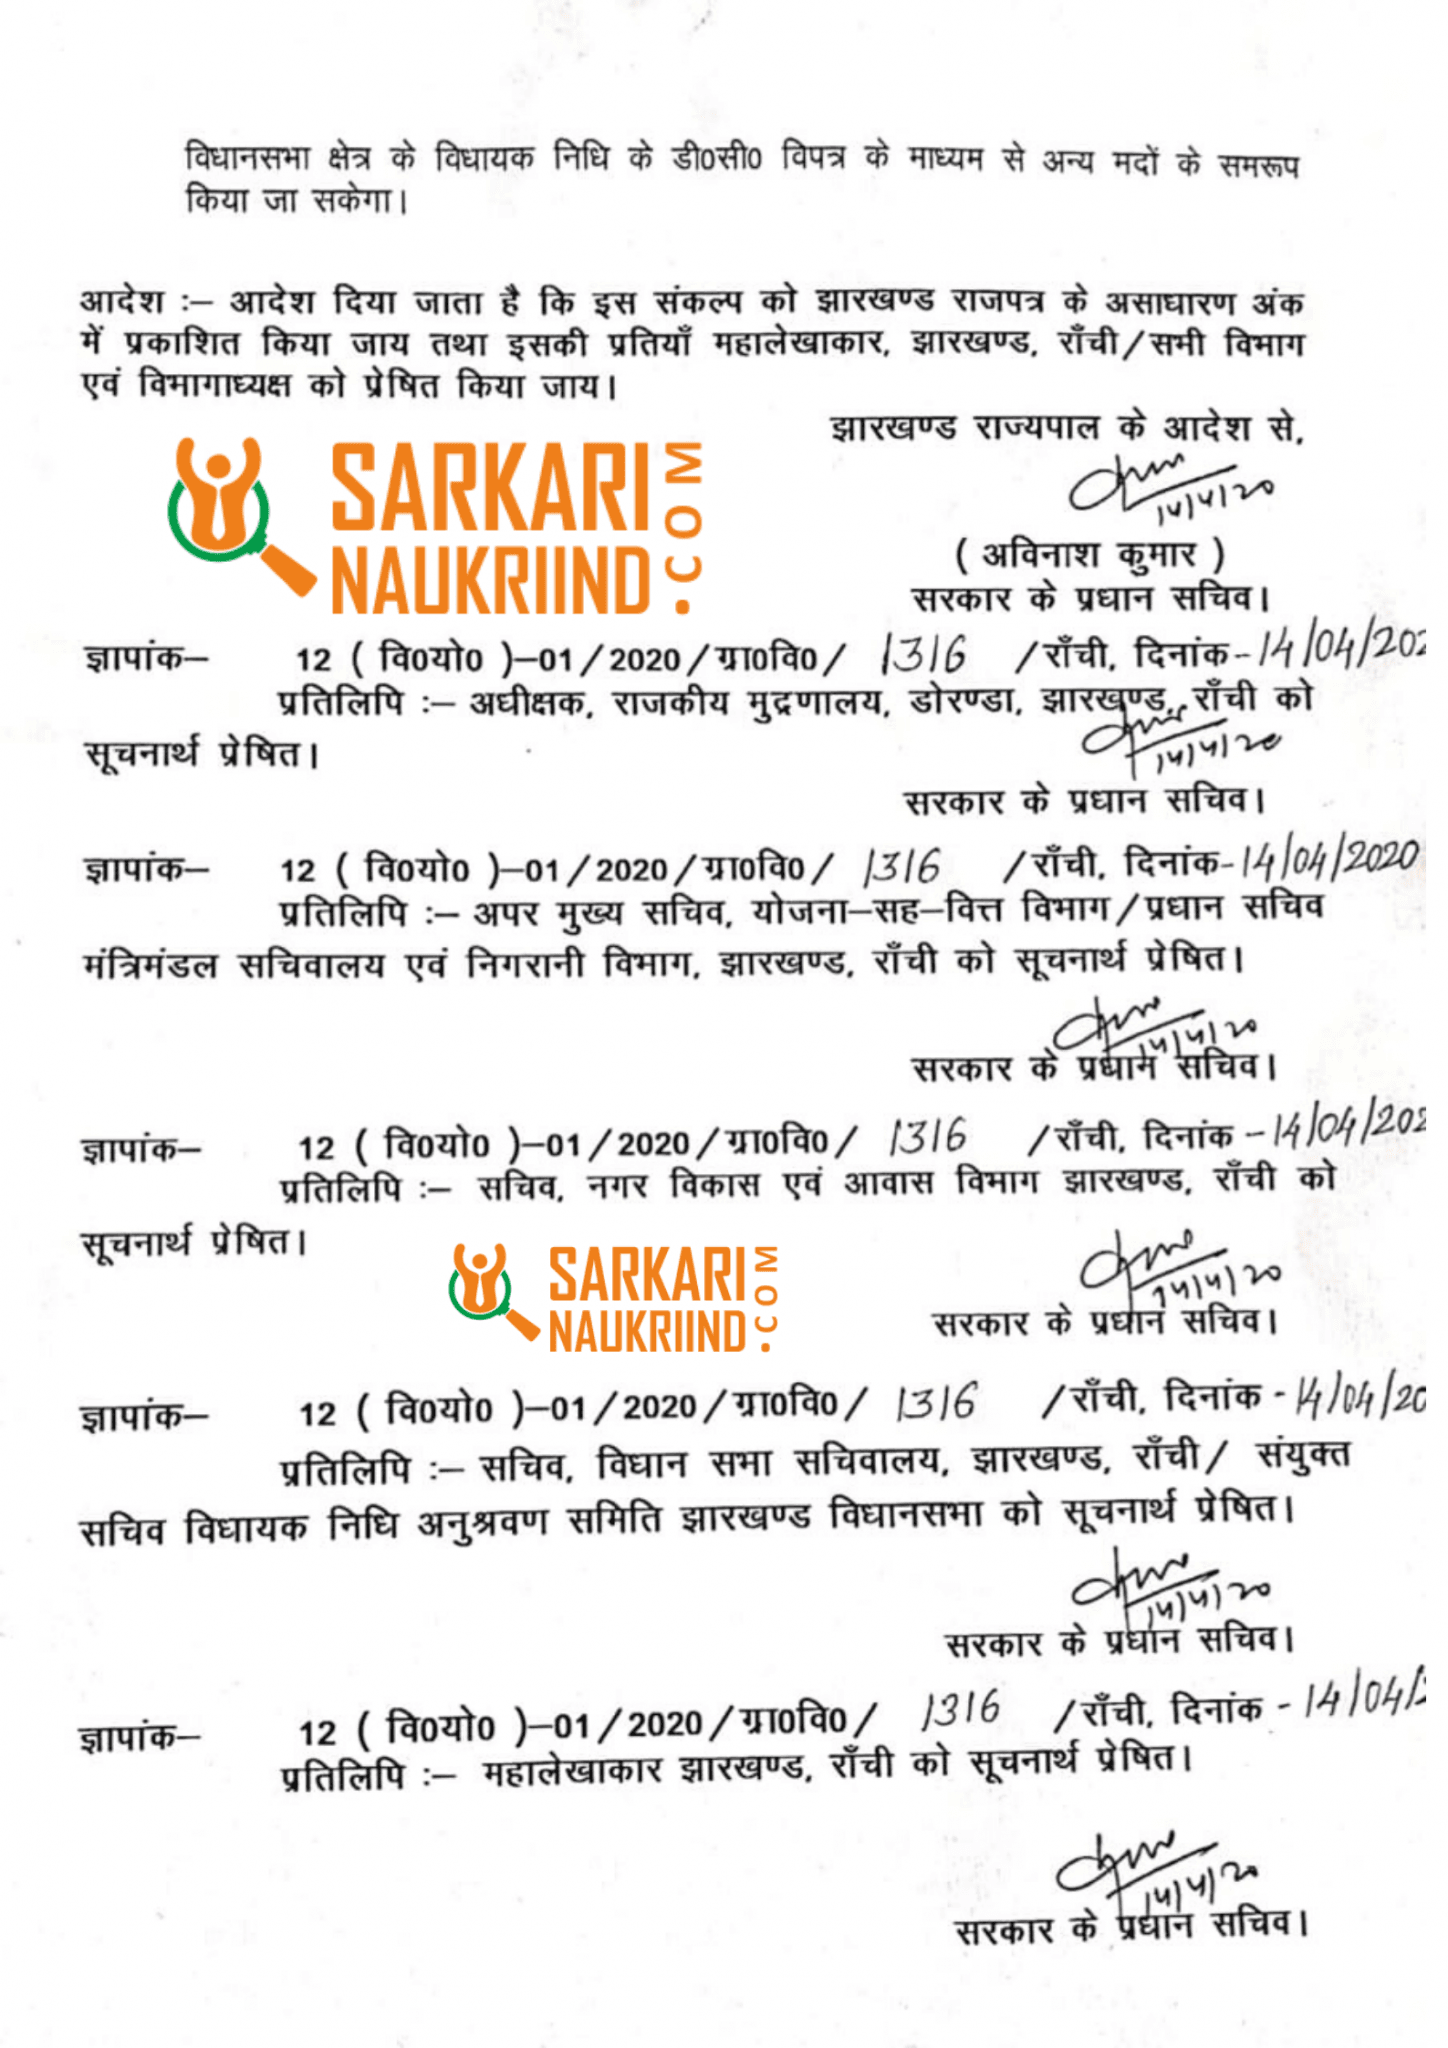 विधानसभा क्षेत्र के विधायक निधि के डी0सी0 विपत्र के माध्यम से अन्य मदों के समरूप
किया जा सकेगा।
आदेश :– आदेश दिया जाता है कि इस संकल्प को झारखण्ड राजपत्र के असाधारण अंक
में प्रकाशित किया जाय तथा इसकी प्रतियाँ महालेखाकार, झारखण्ड, राँची/सभी विभाग
एवं विभागाध्यक्ष को प्रेषित किया जाय।
झारखण्ड राज्यपाल के आदेश से,
SARKARI
NAUKRIIND
.COM
14/4/20
( अविनाश कुमार )
सरकार के प्रधान सचिव।
ज्ञापांक– 12 ( वि0यो0 )–01/2020/ग्रा0वि0/ 1316 /राँची, दिनांक-14/04/202
प्रतिलिपि :– अधीक्षक, राजकीय मुद्रणालय, डोरण्डा, झारखण्ड, राँची को
सूचनार्थ प्रेषित।
14/4/20
सरकार के प्रधान सचिव।
ज्ञापांक– 12 ( वि0यो0 )–01/2020/ग्रा0वि0/ 1316 /राँची, दिनांक-14/04/2020
प्रतिलिपि :– अपर मुख्य सचिव, योजना–सह–वित्त विभाग/प्रधान सचिव
मंत्रिमंडल सचिवालय एवं निगरानी विभाग, झारखण्ड, राँची को सूचनार्थ प्रेषित।
14/4/20
सरकार के प्रधान सचिव।
ज्ञापांक– 12 ( वि0यो0 )–01/2020/ग्रा0वि0/ 1316 /राँची, दिनांक-14/04/202
प्रतिलिपि :– सचिव, नगर विकास एवं आवास विभाग झारखण्ड, राँची को
सूचनार्थ प्रेषित।
SARKARI
NAUKRIIND
.COM
14/4/20
सरकार के प्रधान सचिव।
ज्ञापांक– 12 ( वि0यो0 )–01/2020/ग्रा0वि0/ 1316 /राँची, दिनांक-14/04/20
प्रतिलिपि :– सचिव, विधान सभा सचिवालय, झारखण्ड, राँची/ संयुक्त
सचिव विधायक निधि अनुश्रवण समिति झारखण्ड विधानसभा को सूचनार्थ प्रेषित।
14/4/20
सरकार के प्रधान सचिव।
ज्ञापांक– 12 ( वि0यो0 )–01/2020/ग्रा0वि0/ 1316 /राँची, दिनांक-14/04/2
प्रतिलिपि :– महालेखाकार झारखण्ड, राँची को सूचनार्थ प्रेषित।
14/4/20
सरकार के प्रधान सचिव।